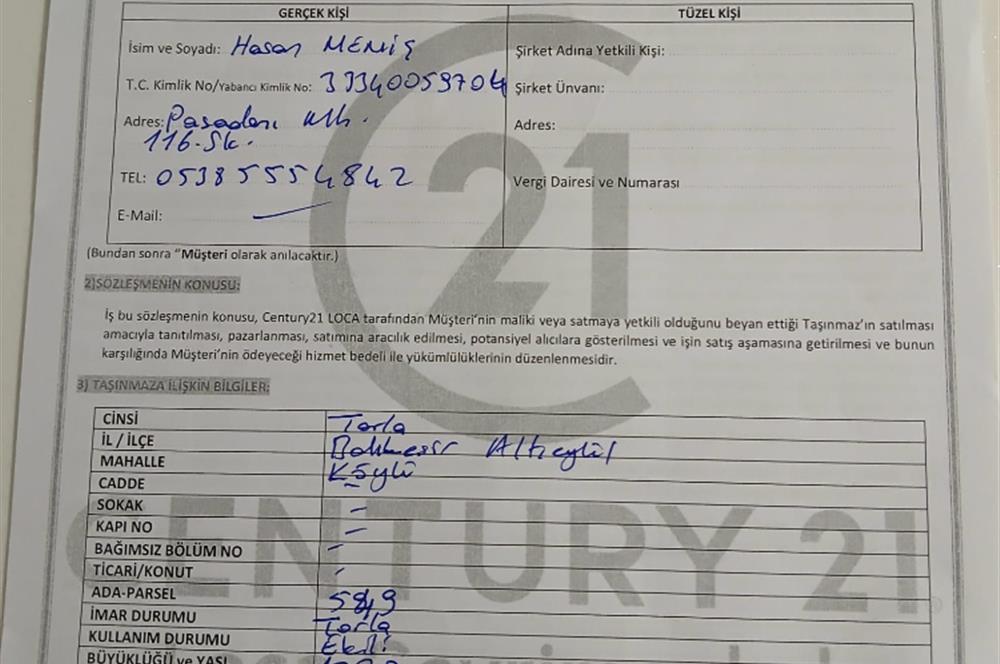 GERÇEK KİŞİ TÜZEL KİŞİ
İsim ve Soyadı: Hasan MEMİŞ Şirket Adına Yetkili Kişi:
T.C. Kimlik No/Yabancı Kimlik No: 39340059704 Şirket Ünvanı:
Adres: Paşaalanı Mh. Adres:
116. Sk.
TEL: 05385554842 Vergi Dairesi ve Numarası
E-Mail: —
(Bundan sonra "Müşteri olarak anılacaktır.)
2)SÖZLEŞMENİN KONUSU:
İş bu sözleşmenin konusu, Century21 LOCA tarafından Müşteri'nin maliki veya satmaya yetkili olduğunu beyan ettiği Taşınmaz'ın satılması
amacıyla tanıtılması, pazarlanması, satımına aracılık edilmesi, potansiyel alıcılara gösterilmesi ve işin satış aşamasına getirilmesi ve bunun
karşılığında Müşteri'nin ödeyeceği hizmet bedeli ile yükümlülüklerinin düzenlenmesidir.
3) TAŞINMAZA İLİŞKİN BİLGİLER:
CİNSİ Tarla
İL / İLÇE Balıkesir Altıeylül
MAHALLE Köylü
CADDE
SOKAK —
KAPI NO —
BAĞIMSIZ BÖLÜM NO —
TİCARİ/KONUT -
ADA-PARSEL
İMAR DURUMU Tarla
KULLANIM DURUMU Ekili
BÜYÜKLÜĞÜ ve YAŞI
C21
CENTURY 21